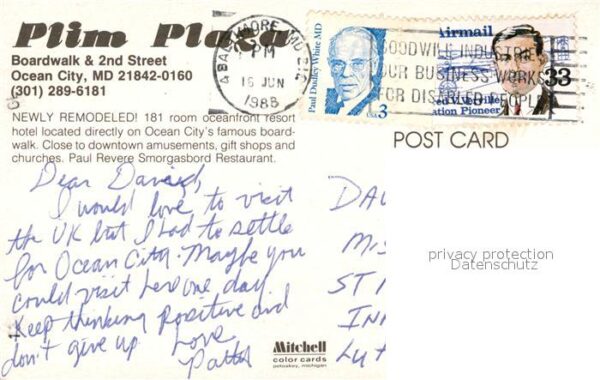 Plim Plaza
Boardwalk & 2nd Street
Ocean City, MD 21842-0160
(301) 289-6181
NEWLY REMODELED! 181 room oceanfront resort
hotel located directly on Ocean City's famous board-
walk. Close to downtown amusements, gift shops and
churches. Paul Revere Smorgasbord Restaurant.
BALTIMORE MD 212
PM
16 JUN
1988
Paul Dudley White MD
USA 3
Airmail
33
Aviation Pioneer
GOODWILL INDUSTRIES
OUR BUSINESS WORKS
FOR DISABLED PEOPLE
POST CARD
Dear David,
I would love to visit
the UK but I had to settle
for Ocean City. Maybe you
could visit here one day.
Keep thinking positive and
don't give up Love
Patti
DAV
Mis
ST
IN
LUT
privacy protection
Datenschutz
Mitchell
color cards
petoskey, michigan